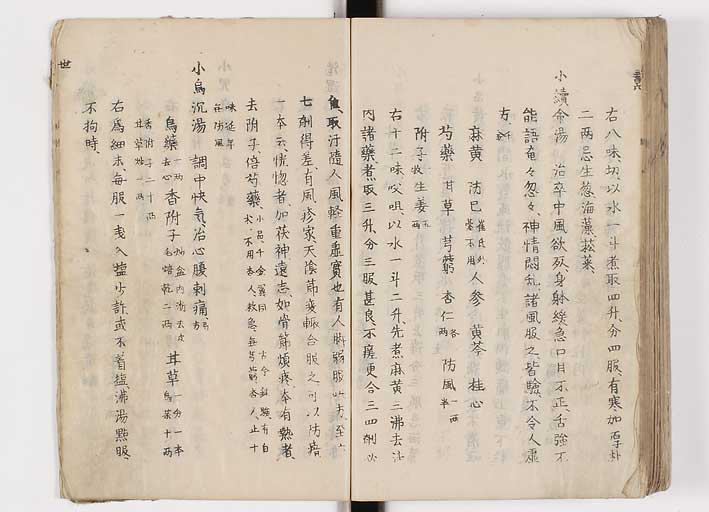 右八味切以水一斗煮取四升分四服有寒加厚朴
二两忌生葱海藻菘菜
小續命湯 治卒中風欲死身躰緩急口目不正舌強不
能語奄々忽々神情悶乱諸風服之皆驗不令人虚
方
麻黄 防已 人参 黄芩 桂心
芍藥 甘草 芎藭 杏仁 各一两 防風 一两半
附子 一枚 生姜 五两
右十二味㕮咀以水一斗二升先煮麻黄三沸去沫
内諸藥煮取三升分三服甚良不瘥更合三四剤必
佳取汗隨人風軽重虚實也有人脚弱服此方至六
七剤得差有風疹家天陰節変輙合服之可以防瘖
一本云恍惚者加茯神遠志如骨節煩疼本有熱者
去附子倍芍藥
小烏沉湯 調中快氣治心腹刺痛
烏藥 去心 一两 香附子 二两 甘草 一分一本
右為細末毎服一戔入塩少許或不着塩沸湯點服
不拘時